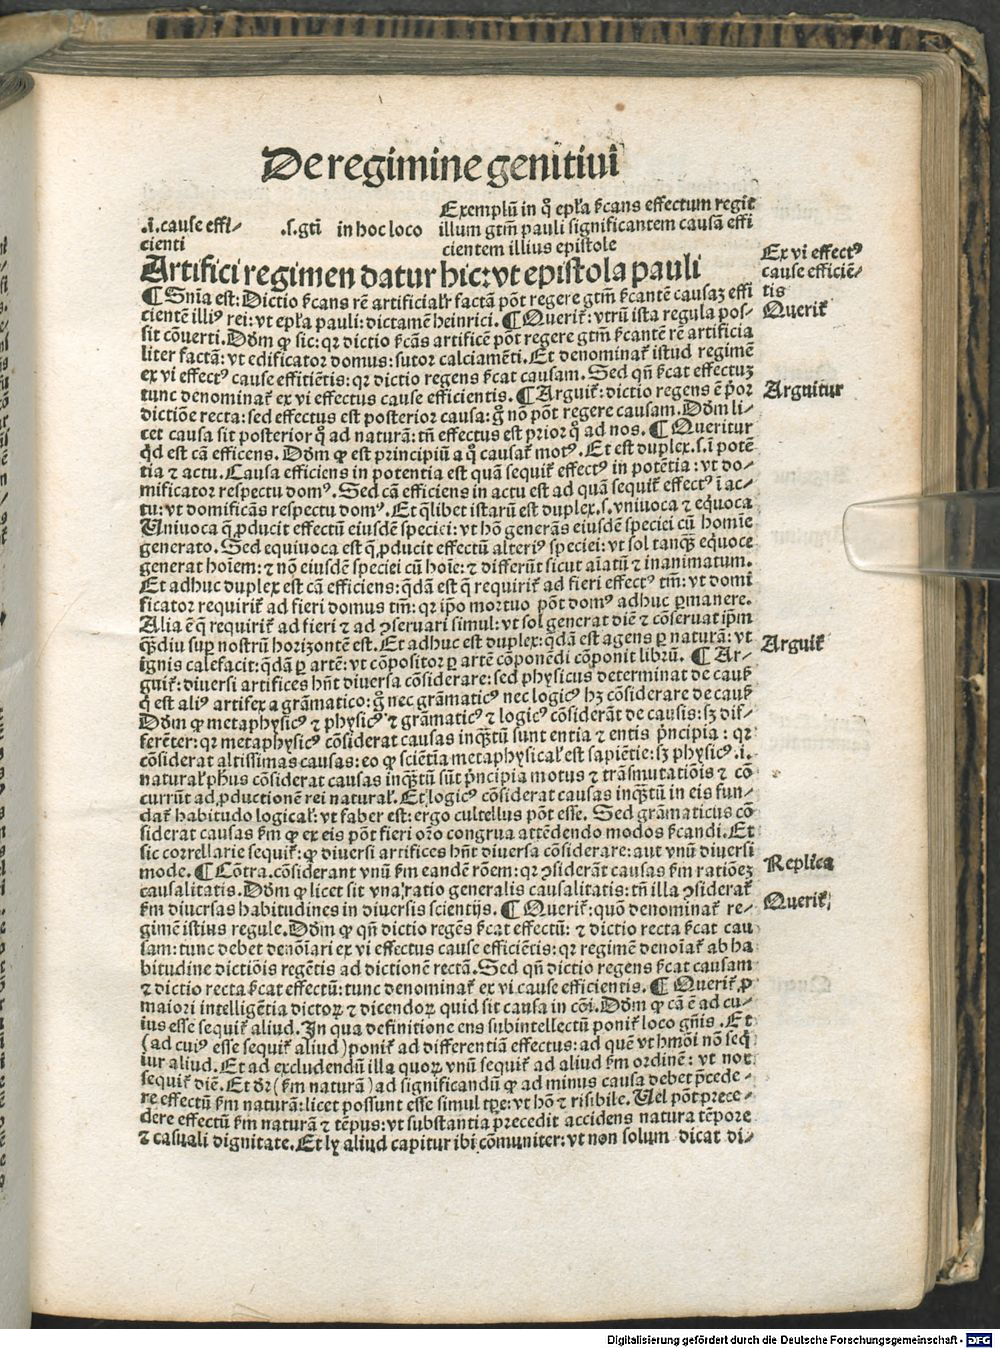 De regimine genitiui
Exemplū in q̊ epl̄a sc̄ans effectum regit
.i. cause effi⸗ .s. gtī in hoc loco illum gtm̄ pauli significantem causā effi
cienti cientem illius epistole
Artifici regimen datur hic: vt epistola pauli
Ex vi effectꝰ
cause efficiē⸗
tis
¶ Snīa est: Dictio sc̄ans rē artificialr̄ factā pōt regere gtm̄ sc̄antē causaꝫ effi
cientē illiꝰ rei: vt epl̄a pauli: dictamē heinrici. ¶ Querit̄: vtrū ista regula pos⸗
Querit̄
sit cōuerti. Dōm ꝙ sic: qr dictio sc̄ās artificē pōt regere gtm̄ sc̄antē rē artificia
liter factā: vt edificator domus: sutor calciamēti. Et denominat̄ istud regimē
ex vi effectꝰ cause effitiētis: qr dictio regens sc̄at causam. Sed qn̄ sc̄at effectuꝫ
tunc denominat̄ ex vi effectus cause efficientis. ¶ Arguit̄: dictio regens ē p̄or
Arguitur
dictiōe recta: sed effectus est posterior causa: g̊ nō pōt regere causam. Dōm li⸗
cet causa sit posterior q̊ ad naturā: tn̄ effectus est prior q̊ ad nos. ¶ Queritur
qd̄ est cā efficens. Dōm ꝙ est principiū a q̊ causat̄ motꝰ. Et est duplex .s. ī potē
tia ⁊ actu. Causa efficiens in potentia est quā sequit̄ effectꝰ in potētia: vt do⸗
mificator respectu domꝰ. Sed cā efficiens in actu est ad quā sequit̄ effectꝰ ī ac⸗
tu: vt domificās respectu domꝰ. Et q̄libet istarū est duplex .s. vniuoca ⁊ eq̄uoca
Uniuoca q̄ ꝓducit effectū eiusdē speciei: vt hō generās eiusdē speciei cū homīe
generato. Sed equiuoca est q̄ ꝓducit effectū alteriꝰ speciei: vt sol tanq̄ꝫ eq̄uoce
generat hoīem: ⁊ nō eiusdē speciei cū hoīe: ⁊ differūt sicut aīatū ⁊ inanimatum.
Et adhuc duplex est cā efficiens: q̄dā est q̄ requirit̄ ad fieri effectꝰ tm̄: vt domi
ficator requirit̄ ad fieri domus tm̄: qr ip̄o mortuo pōt domꝰ adhuc ꝑmanere.
Alia ē q̄ requirit̄ ad fieri ⁊ ad ꝯseruari simul: vt sol generat diē ⁊ cōseruat ip̄m
q̄ꝫdiu sup̄ nostrū horizontē est. Et adhuc est duplex: q̄dā est agens ꝑ naturā: vt
Arguit̄
ignis calefacit: q̄dā ꝑ artē: vt cōpositor ꝑ artē cōponēdi cōponit librū. ¶ Ar⸗
guit̄: diuersi artifices hn̄t diuersa cōsiderare: sed physicus determinat de causꝭ
q̄ est aliꝰ artifex a grāmatico: g̊ nec grāmaticꝰ nec logicꝰ hꝫ cōsiderare de causꝭ
Dōm ꝙ metaphysicꝰ ⁊ physicꝰ ⁊ grāmaticꝰ ⁊ logicꝰ cōsiderāt de causis: sꝫ dif⸗
ferēter: qr metaphysicꝰ cōsiderat causas inq̄ꝫtū sunt entia ⁊ entis p̄ncipia: qr
cōsiderat altissimas causas: eo ꝙ sciētia metaphysical̄ est sapiētie: sꝫ physicꝰ .i.
natural̄ ph̄us cōsiderat causas inq̄ꝫtū sūt p̄ncipia motus ⁊ trāsmutatiōis ⁊ cō
currūt ad ꝓductionē rei natural̄. Et logicꝰ cōsiderat causas inq̄ꝫtū in eis fun⸗
dat̄ habitudo logical̄: vt faber est: ergo cultellus pōt esse. Sed grāmaticus cō
siderat causas sm̄ ꝙ ex eis pōt fieri or̄o congrua attēdendo modos sc̄andi. Et
sic correllarie sequit̄: ꝙ diuersi artifices hn̄t diuersa cōsiderare: aut vnū diuersi
mode. ¶ Cōtra. cōsiderant vnū sm̄ eandē rōem: qr ꝯsiderāt causas sm̄ ratiōeꝫ
Replica
causalitatis. Dōm ꝙ licet sit vna ratio generalis causalitatis: tn̄ illa ꝯsiderat̄
sm̄ diuersas habitudines in diuersis scientijs. ¶ Querit̄: quō denominat̄ re⸗
Querit̄
gimē istius regule. Dōm ꝙ qn̄ dictio regēs sc̄at effectū: ⁊ dictio recta sc̄at cau
sam: tunc debet denōiari ex vi effectus cause efficiētis: qr regimē denoīat̄ ab ha
bitudine dictiōis regētis ad dictionē rectā. Sed qn̄ dictio regens sc̄at causam
⁊ dictio recta sc̄at effectū: tunc denominat̄ ex vi cause efficientis. ¶ Querit̄ ꝓ
maiori intelligētia dictoꝝ ⁊ dicendoꝝ quid sit causa in cōi. Dōm ꝙ cā ē ad cu⸗
ius esse sequit̄ aliud. In qua definitione ens subintellectū ponit̄ loco gn̄is. Et
(ad cuiꝰ esse sequit̄ aliud) ponit̄ ad differentiā effectus: ad quē vt hm̄oi nō seq̄
tur aliud. Et ad excludendū illa quoꝝ vnū sequit̄ ad aliud sm̄ ordinē: vt nox
sequit̄ diē. Et dr̄ (sm̄ naturā) ad significandū ꝙ ad minus causa debet p̄cede⸗
re effectū sm̄ naturā: licet possunt esse simul tꝑe: vt hō ⁊ risibile. Uel pōt prece⸗
dere effectū sm̄ naturā ⁊ tēpus: vt substantia precedit accidens natura tēpore
⁊ casuali dignitate. Et ly aliud capitur ibi cōmuniter: vt non solum dicat di⸗
Digitalisierung gefördert durch die Deutsche Forschungsgemeinschaft - DFG